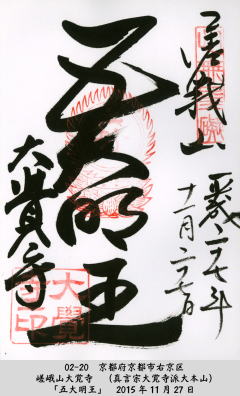 嵯峨山
平成二十七年
十一月二十七日
五大明王
大覚寺
大覺
寺印
02-20 京都府京都市右京区
嵯峨山大覚寺 (真言宗大覚寺派大本山)
「五大明王」 2015年11月27日